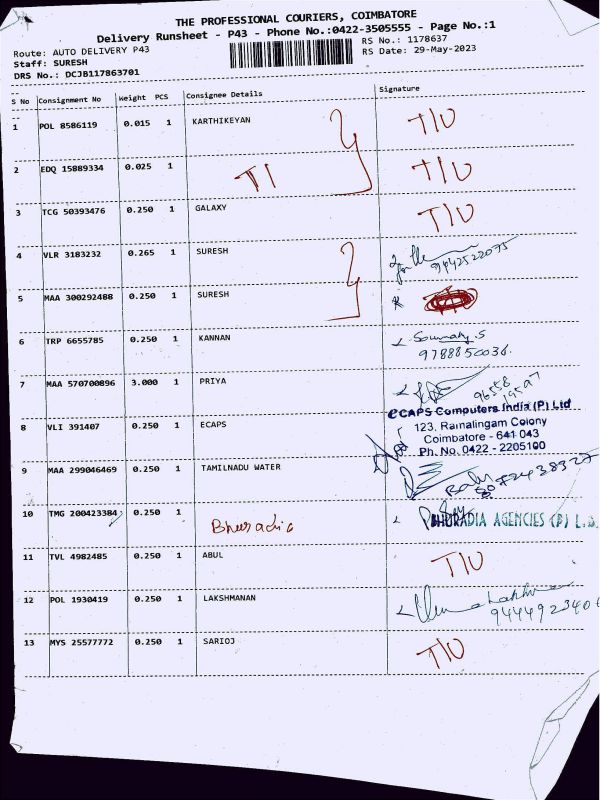 THE PROFESSIONAL COURIERS, COIMBATORE
Delivery Runsheet - P43 - Phone No.:0422-3505555 - Page No.:1
Route: AUTO DELIVERY P43 RS No.: 1178637
Staff: SURESH RS Date: 29-May-2023
DRS No.: DCJB117863701
S No Consignment No Weight PCS Consignee Details Signature
1 POL 8586119 0.015 1 KARTHIKEYAN T/U
2 EDQ 15889334 0.025 1 TI T/U
3 TCG 50393476 0.250 1 GALAXY T/U
4 VLR 3183232 0.265 1 SURESH 9442522075
5 MAA 300292488 0.250 1 SURESH
6 TRP 6655785 0.250 1 KANNAN Soumaty.S
9788850036.
7 MAA 570700896 3.000 1 PRIYA 96558
eCAPS Computers India (P) Ltd
8 VLI 391407 0.250 1 ECAPS 123, Ramalingam Colony
Coimbatore - 641 043
Ph. No. 0422 - 2205100
9 MAA 299046469 0.250 1 TAMILNADU WATER
10 TMG 200423384 0.250 1 Bhuradia BHURADIA AGENCIES (P) L.D.
11 TVL 4982485 0.250 1 ABUL T/U
12 POL 1930419 0.250 1 LAKSHMANAN
13 MYS 25577772 0.250 1 SARIOJ T/U